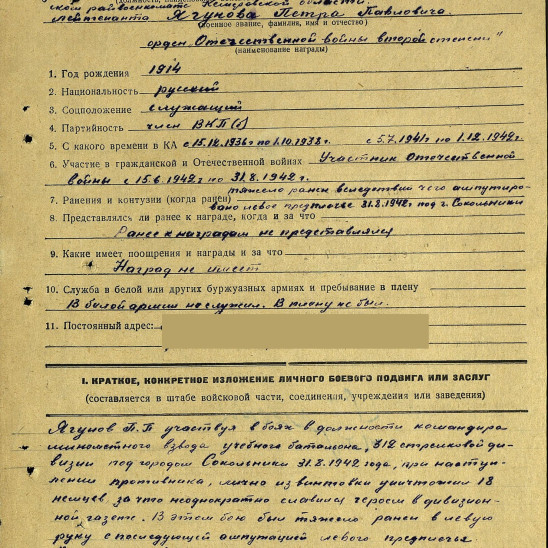 ском райвоенкомате Кемеровской области.
Лейтенанта Ягунова Петра Павловича
(воинское звание, фамилия, имя и отчество)
орден „Отечественной войны второй степени"
(наименование награды)
1. Год рождения 1914
2. Национальность русский
3. Соцположение служащий
4. Партийность член ВКП(б)
5. С какого времени в КА с 15.12.1936г по 1.10.1938г. с 5.7.1941г по 1.12.1942г.
6. Участие в гражданской и Отечественной войнах Участник Отечественной
войны с 15.6.1942г по 31.8.1942г.
7. Ранения и контузии (когда ранен) тяжело ранен вследствий чего ампутиро-
вано левое предплечье 31.8.1942г под г. Сокольники
8. Представлялся ли ранее к награде, когда и за что
Ранее к наградам не представлялся
9. Какие имеет поощрения и награды и за что
Наград не имеет
10. Служба в белой или других буржуазных армиях и пребывание в плену
В белой армии не служил. В плену не был.
11. Постоянный адрес:
I. КРАТКОЕ, КОНКРЕТНОЕ ИЗЛОЖЕНИЕ ЛИЧНОГО БОЕВОГО ПОДВИГА ИЛИ ЗАСЛУГ
(составляется в штабе войсковой части, соединения, учреждения или заведения)
Ягунов П.П участвуя в боях в должности командира
минометного взвода учебного батальона, 312 стрелковой ди-
визии под городом Сокольники 31.8.1942 года, при наступ-
лении противника, лично из винтовки уничтожил 18
немцев, за что неоднократно славился героем в дивизион-
ной газете. В этом бою был тяжело ранен в левую
руку с последующей ампутацией левого предплечья